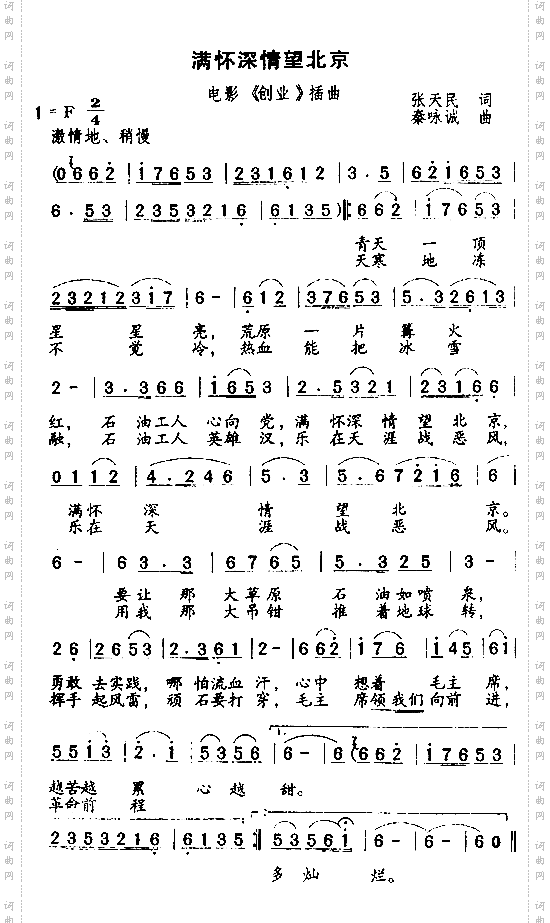 满怀深情望北京
电影《创业》插曲
张天民 词
1=F 2/4
秦咏诚 曲
激情地、稍慢
(0662 | 17653 | 231612 | 3·5 | 621653 |
6·53 | 2353216 | 6135) ‖: 662 | 17653 |
青天 一 顶
天寒 地 冻
23212317 | 6- | 612 | 37653 | 5·32613 |
星 星 亮, 荒原 一 片 篝 火
不 觉 冷, 热血 能 把 冰 雪
2- | 3·366 | 1653 | 2·5321 | 223166 |
红, 石 油工人 心向 党, 满 怀深 情 望 北 京,
融, 石 油工人 英雄 汉, 乐 在天 涯 战 恶 风,
0112 | 4·246 | 5·3 | 5·67216 |
满怀 深 情 望 北 京。
乐在 天 涯 战 恶 风。
6- | 663·3 | 6765 | 5·325 | 3- |
要让 那 大草原 石 油如喷 泉,
用我 那 大吊钳 推 着地球 转,
26 | 2653 | 2·361 | 2- | 662 | 176 | 145 | 61 |
勇敢 去实践, 哪 怕流血 汗, 心中 想着 毛主 席,
挥手 起风雷, 顽 石要打 穿, 毛主 席领我们 向前 进,
5513 | 2·1 | 5356 | 6- | 6 (662 | 17653 |
越苦越 累 心 越 甜。
革命前 程
2353216 | 6135) :‖ 53561 | 6- | 6- | 60 ‖
多 灿 烂。
词曲网